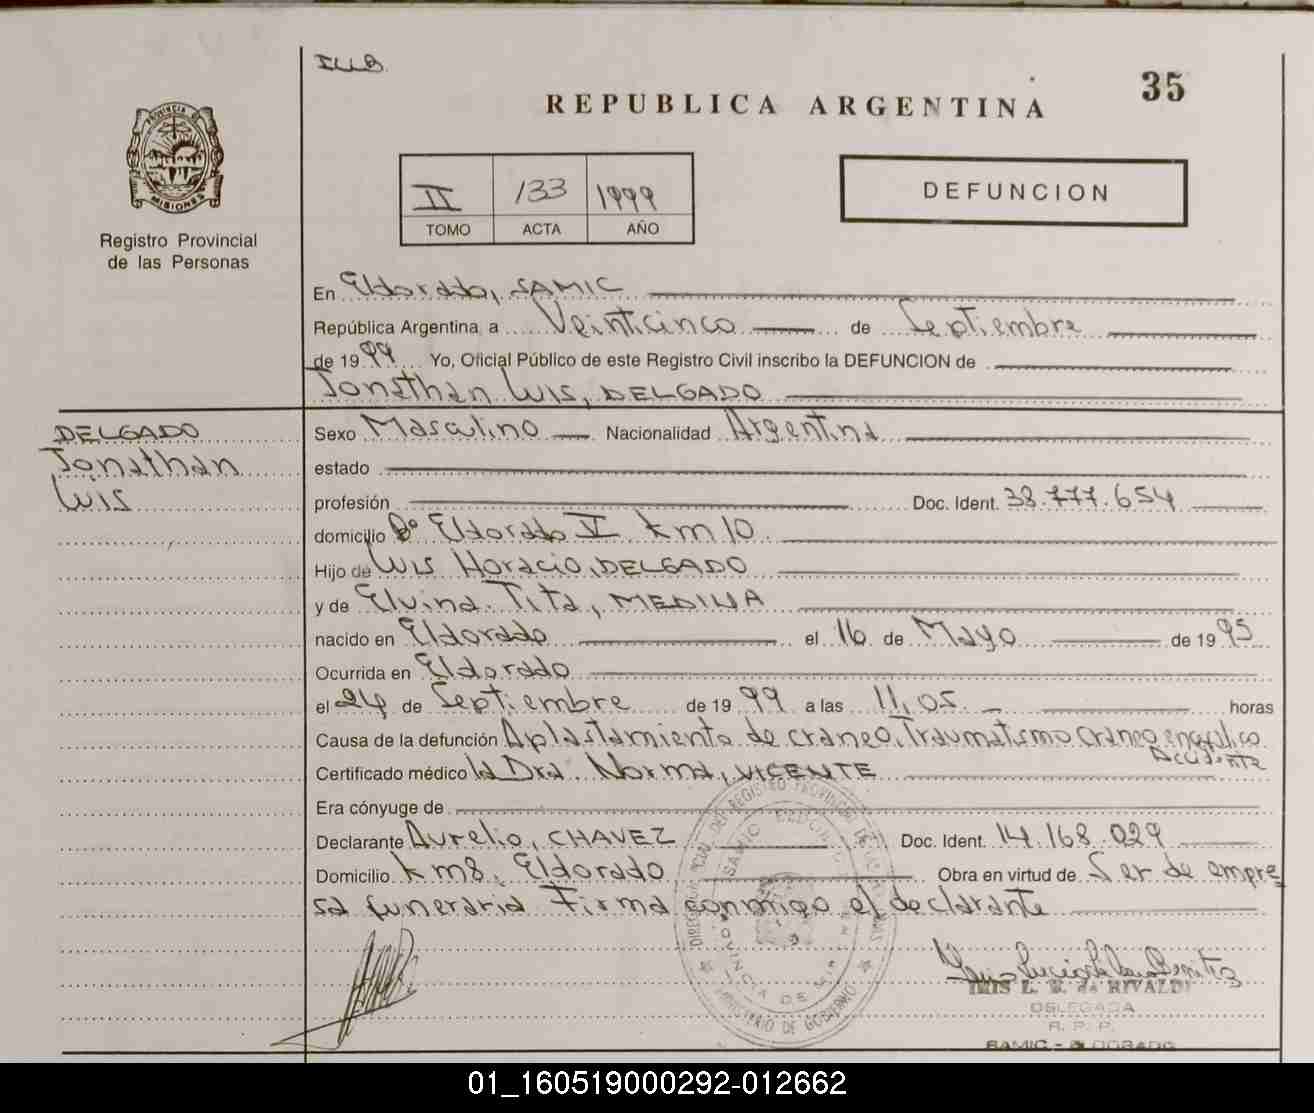 35
REPUBLICA ARGENTINA
PROVINCIA DE
MISIONES
Registro Provincial
de las Personas
II 133 1999
TOMO ACTA AÑO
DEFUNCION
En Eldorado, SAMIC
República Argentina a Veinticinco de Septiembre
de 1999 Yo, Oficial Público de este Registro Civil inscribo la DEFUNCION de
Jonathan Luis, DELGADO
DELGADO
Jonathan
Luis
Sexo Masculino Nacionalidad Argentina
estado
profesión Doc. Ident. 38.777.654
domicilio Bº Eldorado V km 10
Hijo de Luis Horacio, DELGADO
y de Elvina Tita, MEDINA
nacido en Eldorado el 16 de Mayo de 1995
Ocurrida en Eldorado
el 24 de Septiembre de 1999 a las 11,05 horas
Causa de la defunción Aplastamiento de craneo, Traumatismo craneo
Accidente
Certificado médico la Dra. Norma, VICENTE
Era cónyuge de
Declarante Aurelio, CHAVEZ Doc. Ident. 14.168.029
Domicilio km 8, Eldorado Obra en virtud de Ser de empre
sa funeraria Firma conmigo el declarante
MINISTERIO DE GOBIERNO
PROVINCIA DE
IRIS L. de RIVALDI
DELEGADA
R. P. P.
SAMIC - ELDORADO
01_160519000292-012662